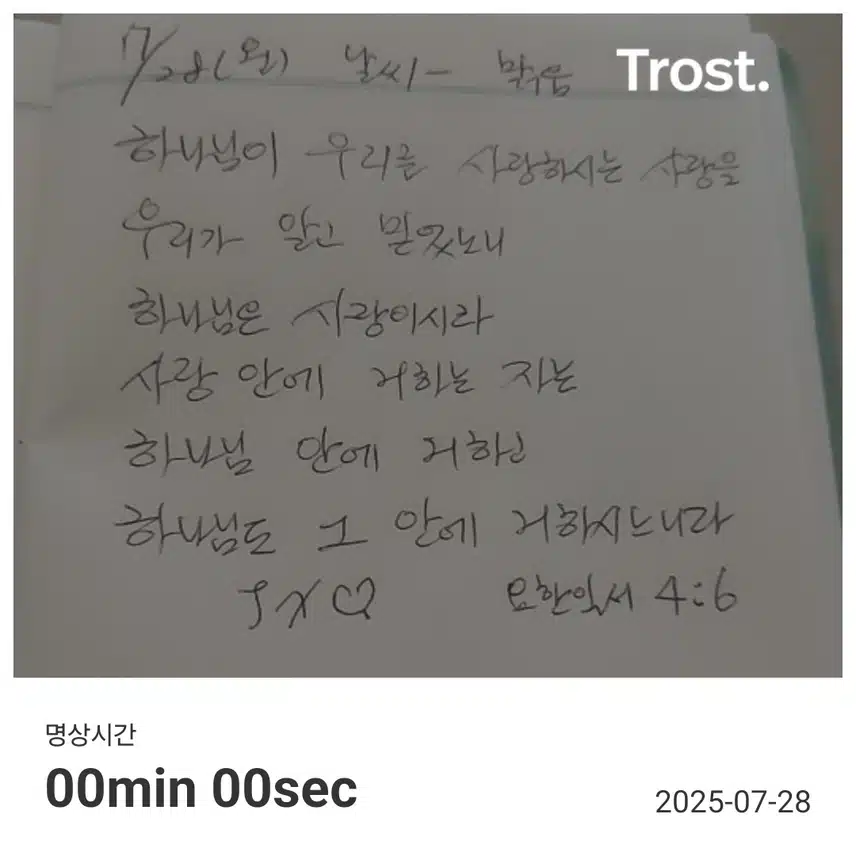 7/28(월) 날씨- 맑음
Trost.
하나님이 우리를 사랑하시는 사랑을
우리가 알고 믿었노니
하나님은 사랑이시라
사랑 안에 거하는 자는
하나님 안에 거하고
하나님도 그 안에 거하시느니라
J X ♡ 요한일서 4:6
명상시간
00min 00sec
2025-07-28